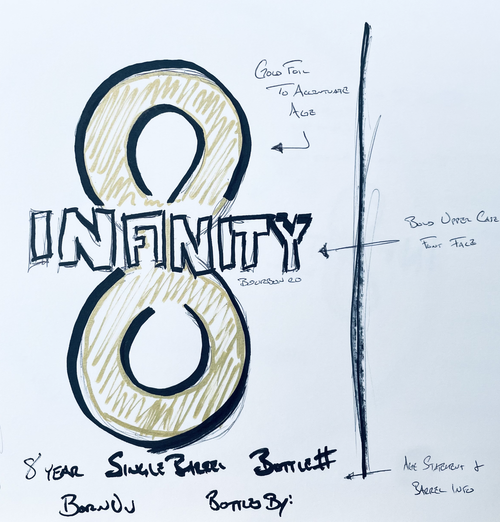 Gold Foil
To Accentuate
Age
INFINITY
Bourbon Co
Bold Upper Case
Font Face
8 year Single Barrel Bottle#
Age Statement &
Barrel Info
Born On Bottled By: